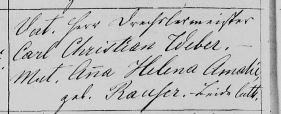 Vat. Herr Drechslermeister
Carl Christian Weber. –
Mut. Anna Helena Amalie,
geb. Rauser. – Beide luth.